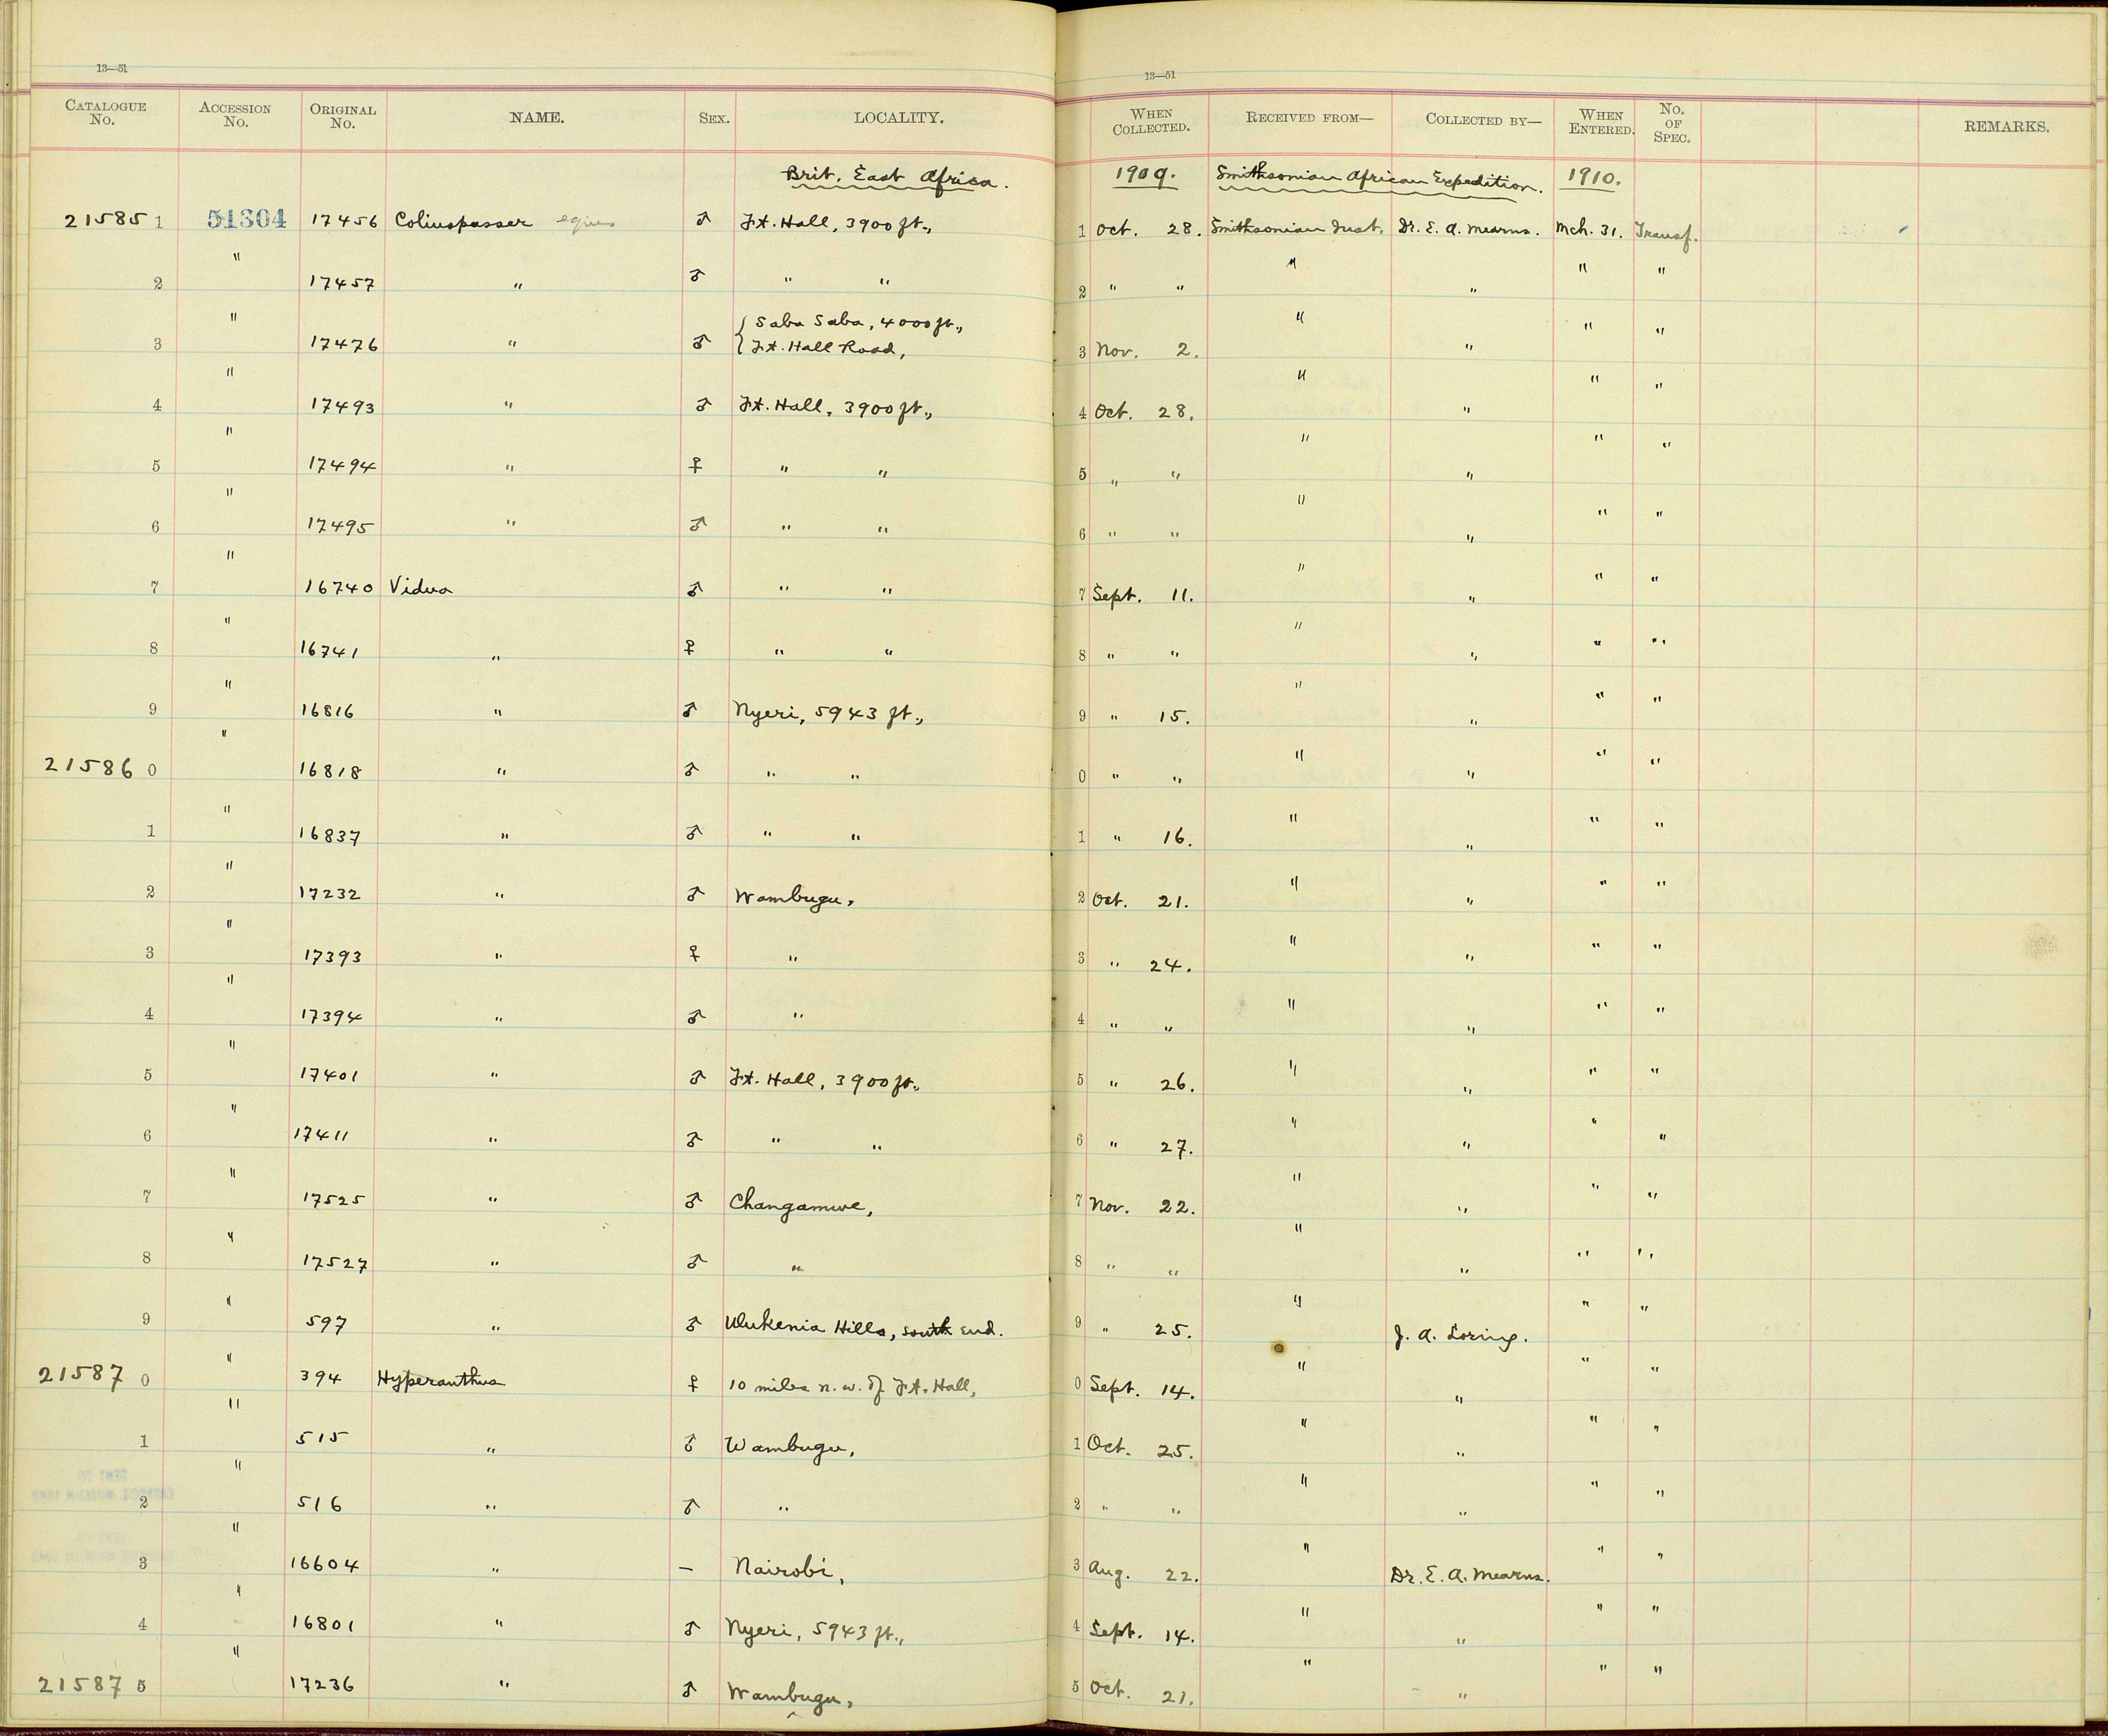 13—51
13—51
CATALOGUE No. ACCESSION No. ORIGINAL No. NAME. SEX. LOCALITY. WHEN COLLECTED. RECEIVED FROM— COLLECTED BY— WHEN ENTERED. No. OF SPEC. REMARKS.
Brit. East Africa. 1909. Smithsonian African Expedition. 1910.
21585 1 51304 17456 Coliuspasser eques ♂ Ft. Hall, 3900 ft., 1 Oct. 28. Smithsonian Inst. Dr. E. A. Mearns. Mch. 31. Transf.
2 " 17457 " ♂ " " 2 " " " " " "
3 " 17476 " ♂ { Saba Saba, 4000 ft., Ft. Hall Road, 3 Nov. 2. " " " "
4 " 17493 " ♂ Ft. Hall, 3900 ft., 4 Oct. 28. " " " "
5 " 17494 " ♀ " " 5 " " " " " "
6 " 17495 " ♂ " " 6 " " " " " "
7 " 16740 Vidua ♂ " " 7 Sept. 11. " " " "
8 " 16741 " ♀ " " 8 " " " " " "
9 " 16816 " ♂ Nyeri, 5943 ft., 9 " 15. " " " "
21586 0 " 16818 " ♂ " " 0 " " " " " "
1 " 16837 " ♂ " " 1 " 16. " " " "
2 " 17232 " ♂ Wambugu, 2 Oct. 21. " " " "
3 " 17393 " ♀ " 3 " 24. " " " "
4 " 17394 " ♂ " 4 " " " " " "
5 " 17401 " ♂ Ft. Hall, 3900 ft., 5 " 26. " " " "
6 " 17411 " ♂ " " 6 " 27. " " " "
7 " 17525 " ♂ Changamwe, 7 Nov. 22. " " " "
8 " 17527 " ♂ " 8 " " " " " "
9 " 597 " ♂ Ulukenia Hills, south end. 9 " 25. " J. A. Loring. " "
21587 0 " 394 Hyperanthus ♀ 10 miles n. w. of Ft. Hall, 0 Sept. 14. " " " "
1 " 515 " ♂ Wambugu, 1 Oct. 25. " " " "
2 " 516 " ♂ " 2 " " " " " "
3 " 16604 " — Nairobi, 3 Aug. 22. " Dr. E. A. Mearns. " "
4 " 16801 " ♂ Nyeri, 5943 ft., 4 Sept. 14. " " " "
21587 5 " 17236 " ♂ Wambugu, 5 Oct. 21. " " " "